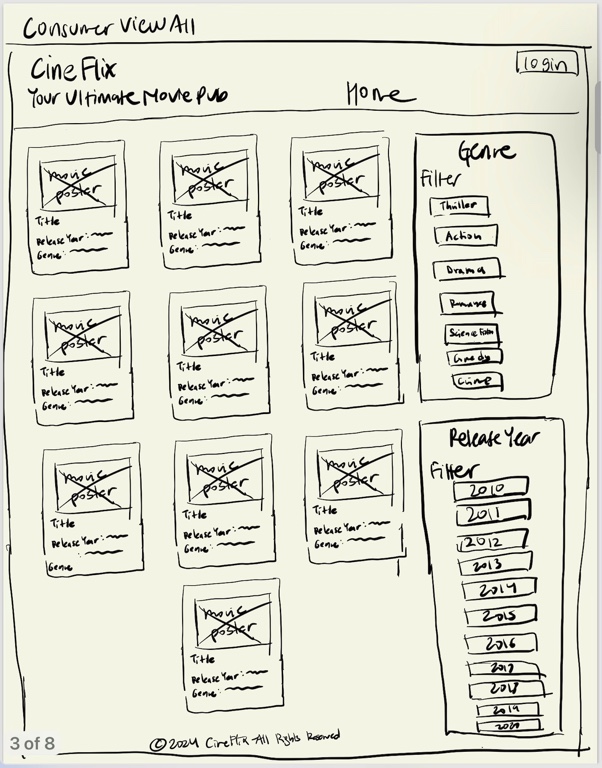 Consumer View All
CineFlix
Your Ultimate Movie Pub
Home
login
movie
poster
Title
Release Year:
Genre:
movie
poster
Title
Release Year:
Genre:
movie
poster
Title
Release Year:
Genre:
movie
poster
Title
Release Year:
Genre:
movie
poster
Title
Release Year:
Genre:
movie
poster
Title
Release Year:
Genre:
movie
poster
Title
Release Year:
Genre
movie
poster
Title
Release Year:
Genre:
movie
poster
Title
Release Year:
Genre:
movie
poster
Title
Release Year:
Genre:
Genre
Filter
Thriller
Action
Drama
Romance
Science Fiction
Comedy
Crime
Release Year
Filter
2010
2011
2012
2013
2014
2015
2016
2017
2018
2019
2020
© 2024 CineFlix All Rights Reserved
3 of 8